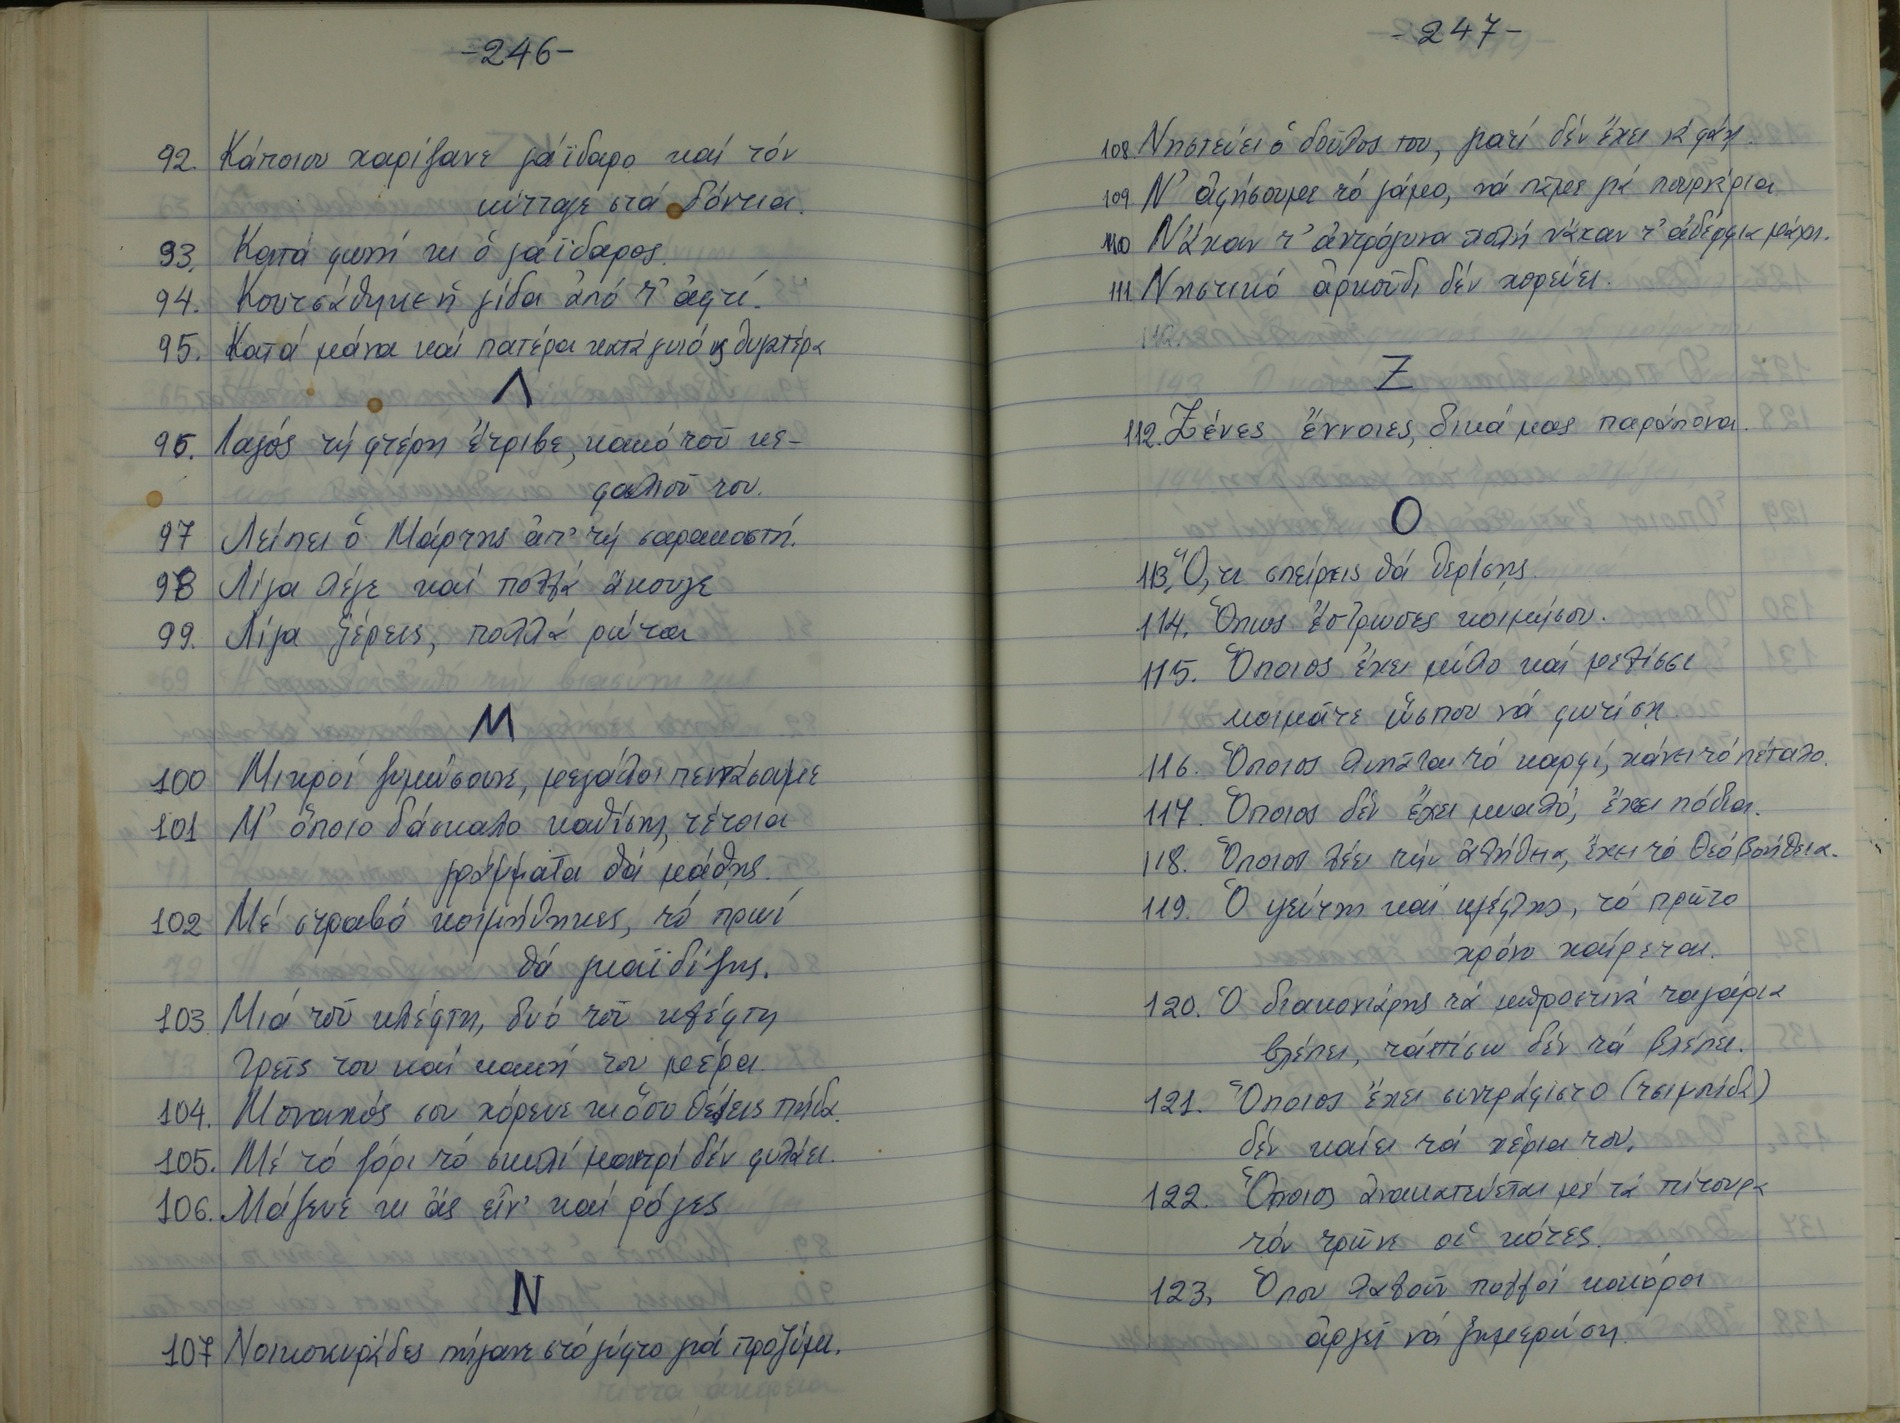 -246-
92. Κάποιου χαρίζανε γάϊδαρο καί τόν
κύτταζε στά δόντια.
93. Κατά φωνή κι ὁ γάϊδαρος.
94. Κουτσάθηκε ἡ γίδα ἀπό τ' ἀφτί.
95. Κατά μάνα καί πατέρα κατά γυιό κ θυγατέρα
Λ
96. Λαγός τή φτέρη ἔτριβε, κακό τοῦ κε-
φαλιοῦ του.
97 Λείπει ὁ Μάρτης ἀπ' τή σαρακοστή.
98 Λίγα λέγε καί πολλά ἄκουγε
99. Λίγα ξέρεις, πολλά ρώτα
Μ
100 Μικροί ζυμώσανε, μεγάλοι πεινάσαμε
101 Μ' ὅποιο δάσκαλο καθίσης, τέτοια
γράμματα θά μάθης.
102 Μέ στραβό κοιμήθηκες, τό πρωί
θά γκαϊδίζης.
103 Μιά τοῦ κλέφτη, δυό τοῦ κλέφτη
τρεῖς του καί κακή του μέρα.
104. Μοναχός σου χόρευε κι ὅσο θέλεις πήδα.
105. Μέ τό ζόρι τό σκυλί μαντρί δέν φυλάει.
106. Μάζευε κι ἄς εἶν' καί ρόγες
Ν
107 Νοικοκυράδες πήγανε στό γύφτο γιά προζύμι.
-247-
108 Νηστεύει ὁ δοῦλος του, γιατί δέν ἔχει νά φάη.
109 Ν' ἀφήσουμε τό γάμο, νά πᾶμε γιά πουρνάρια.
110 Νἄχαν τ' ἀντρόγυνα πολλή νἄχαν τ' ἀδέρφια μάχη.
111 Νηστικό ἀρκούδι δέν χορεύει.
112.
Ξ
112. Ξένες ἔννοιες, δικά μας παράπονα.
Ο
113. Ὅ,τι σπείρεις θά θερίσης.
114. Ὅπως ἔστρωσες κοιμήσου.
115. Ὅποιος ἔχει μύλο καί μελίσσι
κοιμᾶτε ὥσπου νά φωτίση.
116. Ὅποιος λυπᾶται τό καρφί, χάνει τό πέταλο.
117. Ὅποιος δέν ἔχει μυαλό, ἔχει πόδια.
118. Ὅποιος λέει τήν ἀλήθεια, ἔχει τό Θεό βοήθεια.
119. Ὁ ψεύτης καί κλέφτης, τό πρῶτο
χρόνο χαίρεται.
120. Ὁ διακονιάρης τά μπροστινά ταγάρια
βλέπει, τάπίσω δέν τά βλέπει.
121. Ὅποιος ἔχει συντράφιστο (τσιμπίδα)
δέν καίει τά χέρια του.
122. Ὅποιος ἀνακατεύεται μέ τά πίτουρα
τόν τρῶνε οἱ κότες.
123. Ὅπου λαλοῦν πολλοί κοκόροι
ἀργεῖ νά ξημερώση.